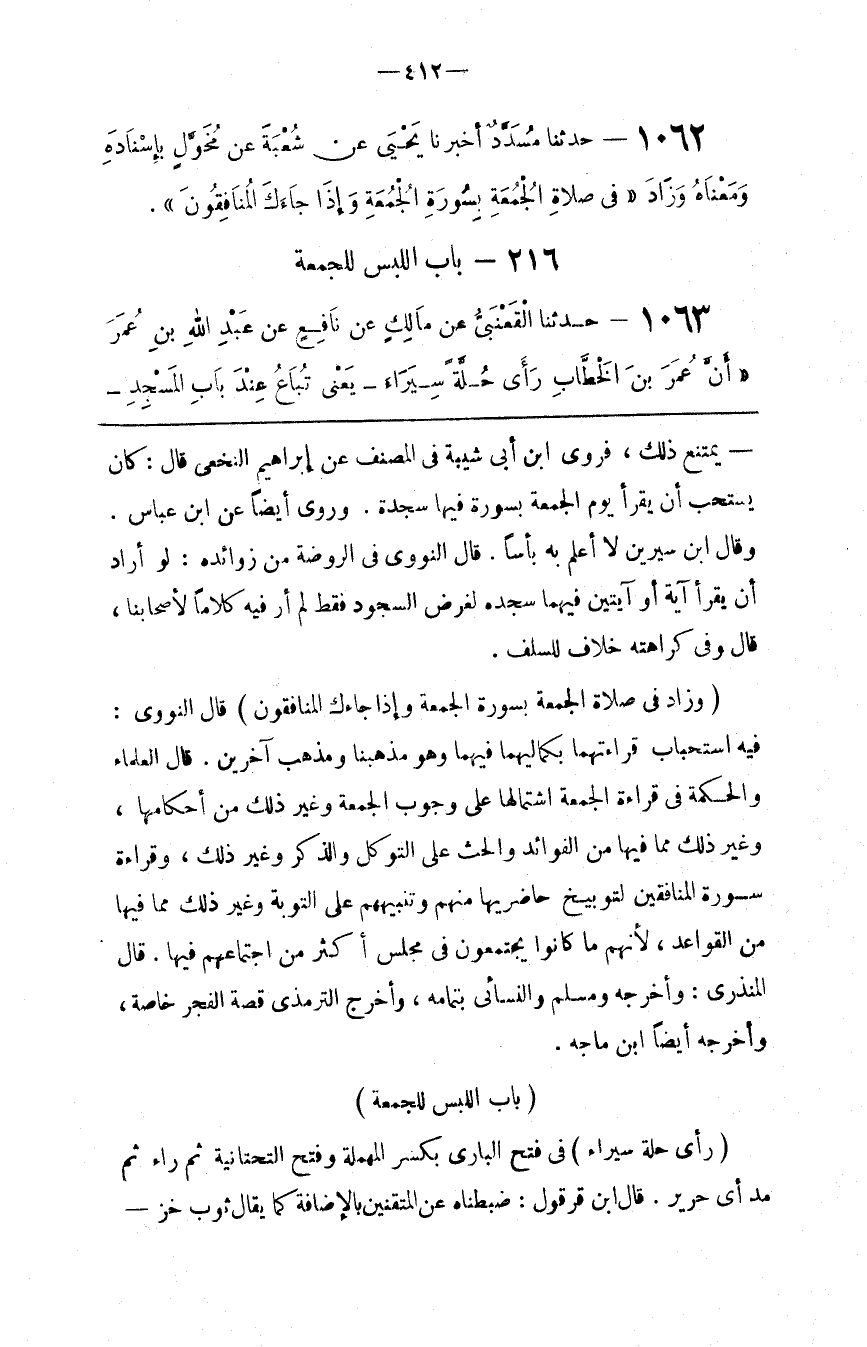 —٤١٢—
١٠٦٢ — حدثنا مُسَدَّدٌ أخبرنا يَحْيَى عن شُعْبَةَ عن مُخَوَّلٍ بإسْنَادَهَِ
وَمَعْنَاهُ وَزَادَ « فى صلاةِ الجُمُعَةِ بِسُورَةِ الْجُمُعَةِ وَإِذَا جاءَكَ المُنَافِقُونَ » .
٢١٦ — باب اللبس للجمعة
١٠٦٣ — حـدثنا الْقَعْنَبِىُّ عن مالِكٍ عن نَافِـعٍ عن عَبْدِ اللهِ بنِ عُمَرَ
« أَنَّ عُمَرَ بنَ الخَطَّابِ رَأَى حُـلَّةً سِـيَرَاءَ ـ يَعْنى تُبَاعُ عِنْدَ بَابِ المَسْجِدِ ـ
— يمتنع ذلك ، فروى ابن أبى شيبة فى المصنف عن إبراهيم النخعى قال : كان
يستحب أن يقرأ يوم الجمعة بسورة فيها سجدة . وروى أيضاً عن ابن عباس .
وقال ابن سيرين لا أعلم به بأساً . قال النووى فى الروضة من زوائده : لو أراد
أن يقرأ آية أو آيتين فيهما سجده لغرض السجود فقط لم أر فيه كلاماً لأصحابنا ،
قال وفى كراهته خلاف للسلف .
( وزاد فى صلاة الجمعة بسورة الجمعة وإذا جاءك المنافقون ) قال النووى :
فيه استحباب قراءتهما بكاليهما فيهما وهو مذهبنا ومذهب آخرين . قال العلماء
والحـكمة فى قراءة الجمعة اشتمالها على وجوب الجمعة وغير ذلك من أحكامها ،
وغير ذلك مما فيها من الفوائد والحث على التوكل والذكر وغير ذلك ، وقراءة
سـورة المنافقين لتوبيـخ حاضريها منهم وتنبيههم على التوبة وغير ذلك مما فيها
من القواعد ، لأنهم ما كانوا يجتمعون فى مجلس أكثر من اجتماعهم فيها . قال
المنذرى : وأخرجه ومسـلم والنسـائى بتمامه ، وأخرج الترمذى قصة الفجر خاصة ،
وأخرجه أيضاً ابن ماجه .
( باب اللبس للجمعة )
( رأى حلة سيراء ) فى فتح البارى بكسر المهملة وفتح التحتانية ثم راء ثم
مد أى حرير . قال ابن قرقول : ضبطناه عن المتقنين بالإضافة كما يقال ثوب خز —